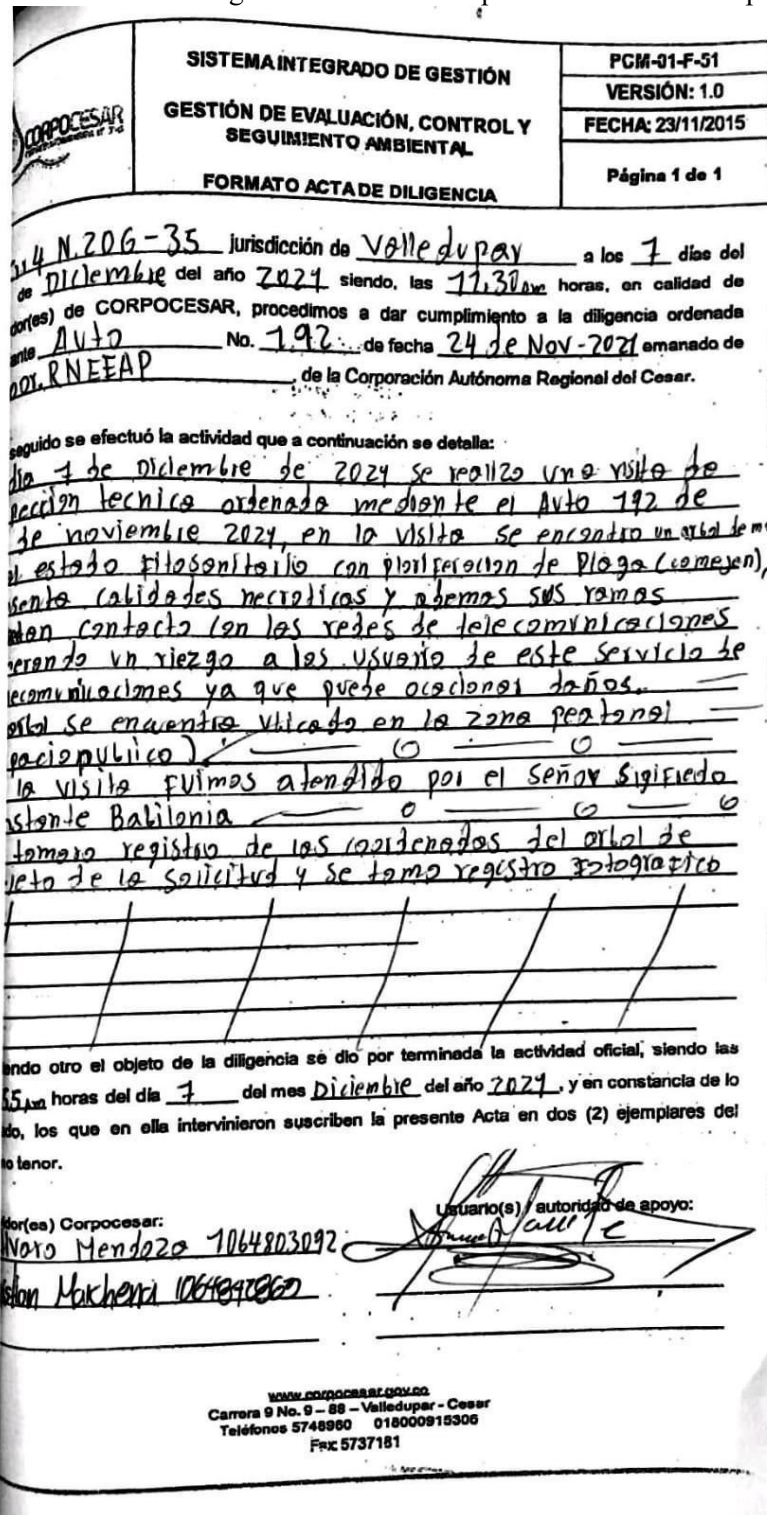 SISTEMA INTEGRADO DE GESTIÓN
GESTIÓN DE EVALUACIÓN, CONTROL Y
SEGUIMIENTO AMBIENTAL
FORMATO ACTA DE DILIGENCIA
PCM-01-F-51
VERSIÓN: 1.0
FECHA: 23/11/2015
Página 1 de 1
CORPOCESAR
N.20G-35 jurisdicción de Valledupar a los 7 días del
de Diciembre del año 2021 siendo, las 11:30 am horas, en calidad de
dor(es) de CORPOCESAR, procedimos a dar cumplimiento a la diligencia ordenada
ante Auto No. 192 de fecha 24 de Nov-2021 emanado de
por. RNEEAP, de la Corporación Autónoma Regional del Cesar.
seguido se efectuó la actividad que a continuación se detalla:
dia 7 de Diciembre de 2021 se realizo una visita de
pección tecnica ordenada mediante el Auto 192 de
de noviembre 2021, en la visita se encontro un arbol de m
estado fitosanitario con proliferacion de Plaga (comejen),
senta calidades necroticas y ademas sus ramas
contacto con las redes de telecomunicaciones
erando un riezgo a los usuario de este servicio de
lecomunicaciones ya que puede ocacionar daños.
arbol se encuentra ubicado en la zona peatonal
pacio publico)
la visita fuimos atendido por el Señor Sigifredo
stante Babilonia
tomaro registro de las coordenadas del arbol de
jeto de la solicitud y se tomo registro fotografico
endo otro el objeto de la diligencia se dio por terminada la actividad oficial, siendo las
55 am horas del día 7 del mes Diciembre del año 2021, y en constancia de lo
do, los que en ella intervinieron suscriben la presente Acta en dos (2) ejemplares del
o tenor.
dor(es) Corpocesar:
Usuario(s) / autoridad de apoyo:
Mendoza 1064803092
Marchena
www.corpocesar.gov.co
Carrera 9 No. 9 – 88 – Valledupar - Cesar
Teléfonos 5748960 018000915306
Fax: 5737181